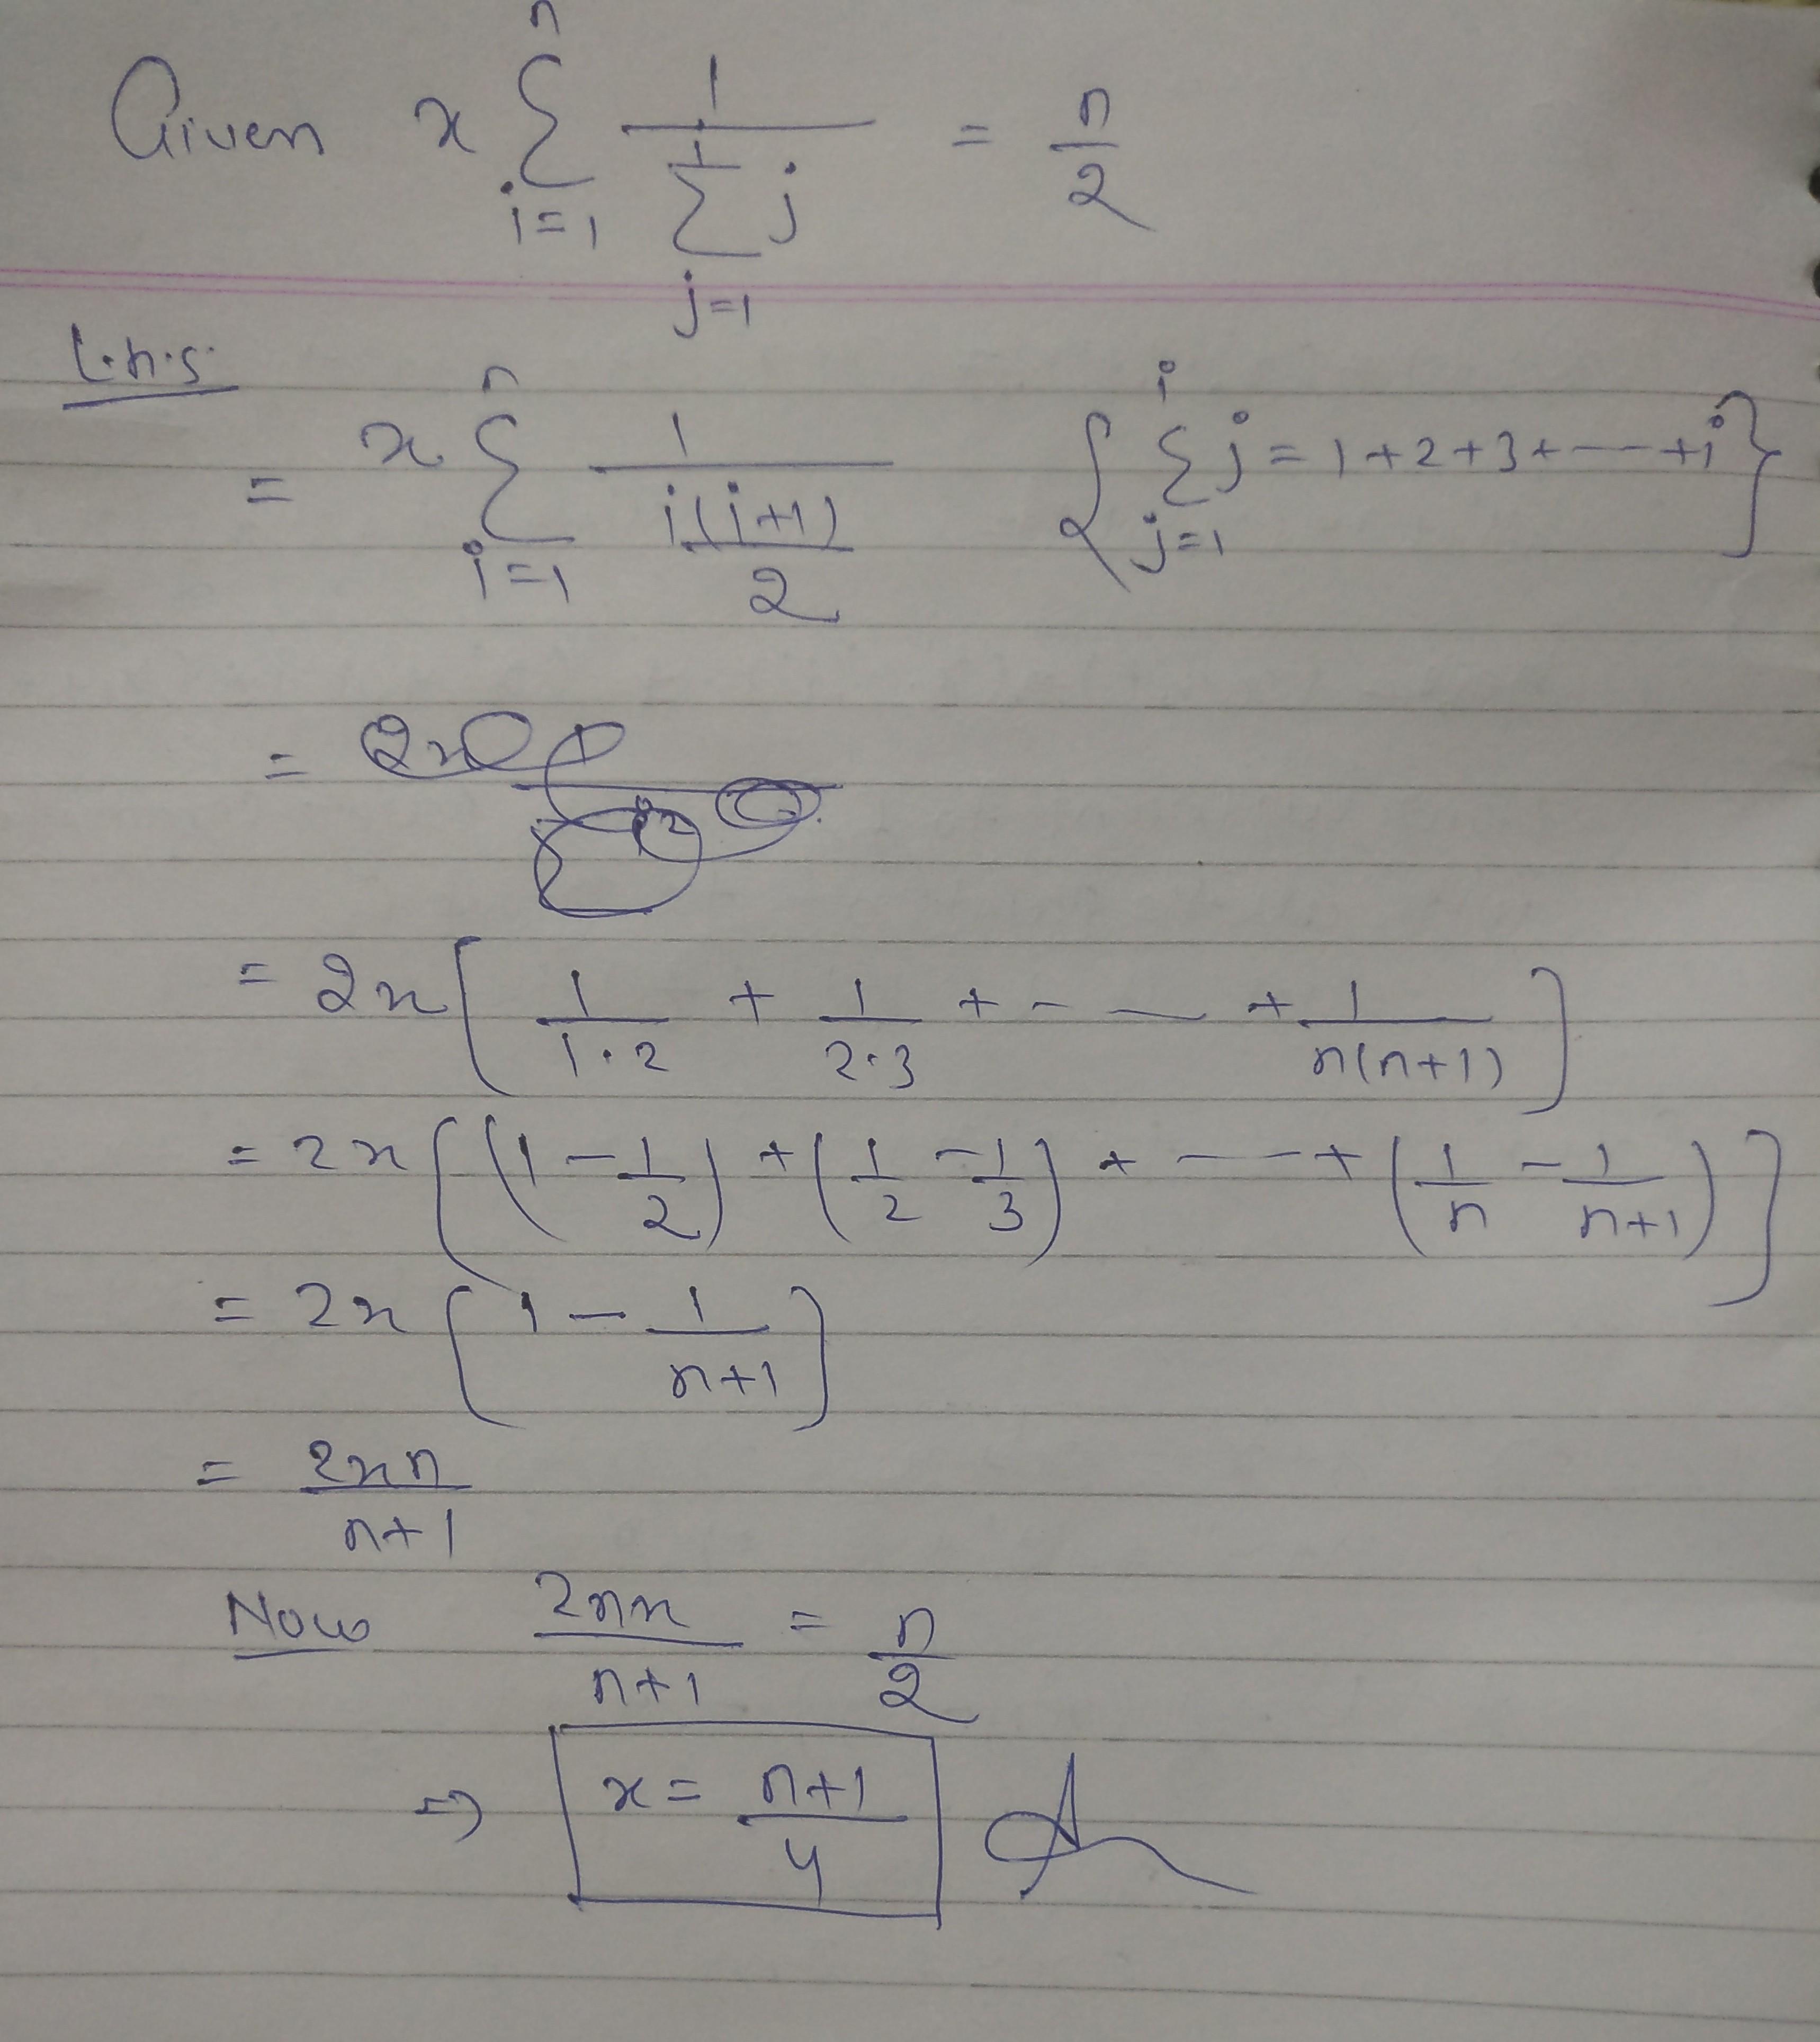 Given x ∑_{i=1}^{n} 1/(∑_{j=1}^{i} j) = n/2
L.h.s.
= x ∑_{i=1}^{n} 1/(i(i+1)/2) { ∑_{j=1}^{i} j = 1+2+3+----+i }
= 2x [ 1/(1·2) + 1/(2·3) + --- + 1/(n(n+1)) ]
= 2x [ (1 - 1/2) + (1/2 - 1/3) + ---- + (1/n - 1/(n+1)) ]
= 2x [ 1 - 1/(n+1) ]
= 2xn/(n+1)
Now 2nx/(n+1) = n/2
⇒ x = (n+1)/4